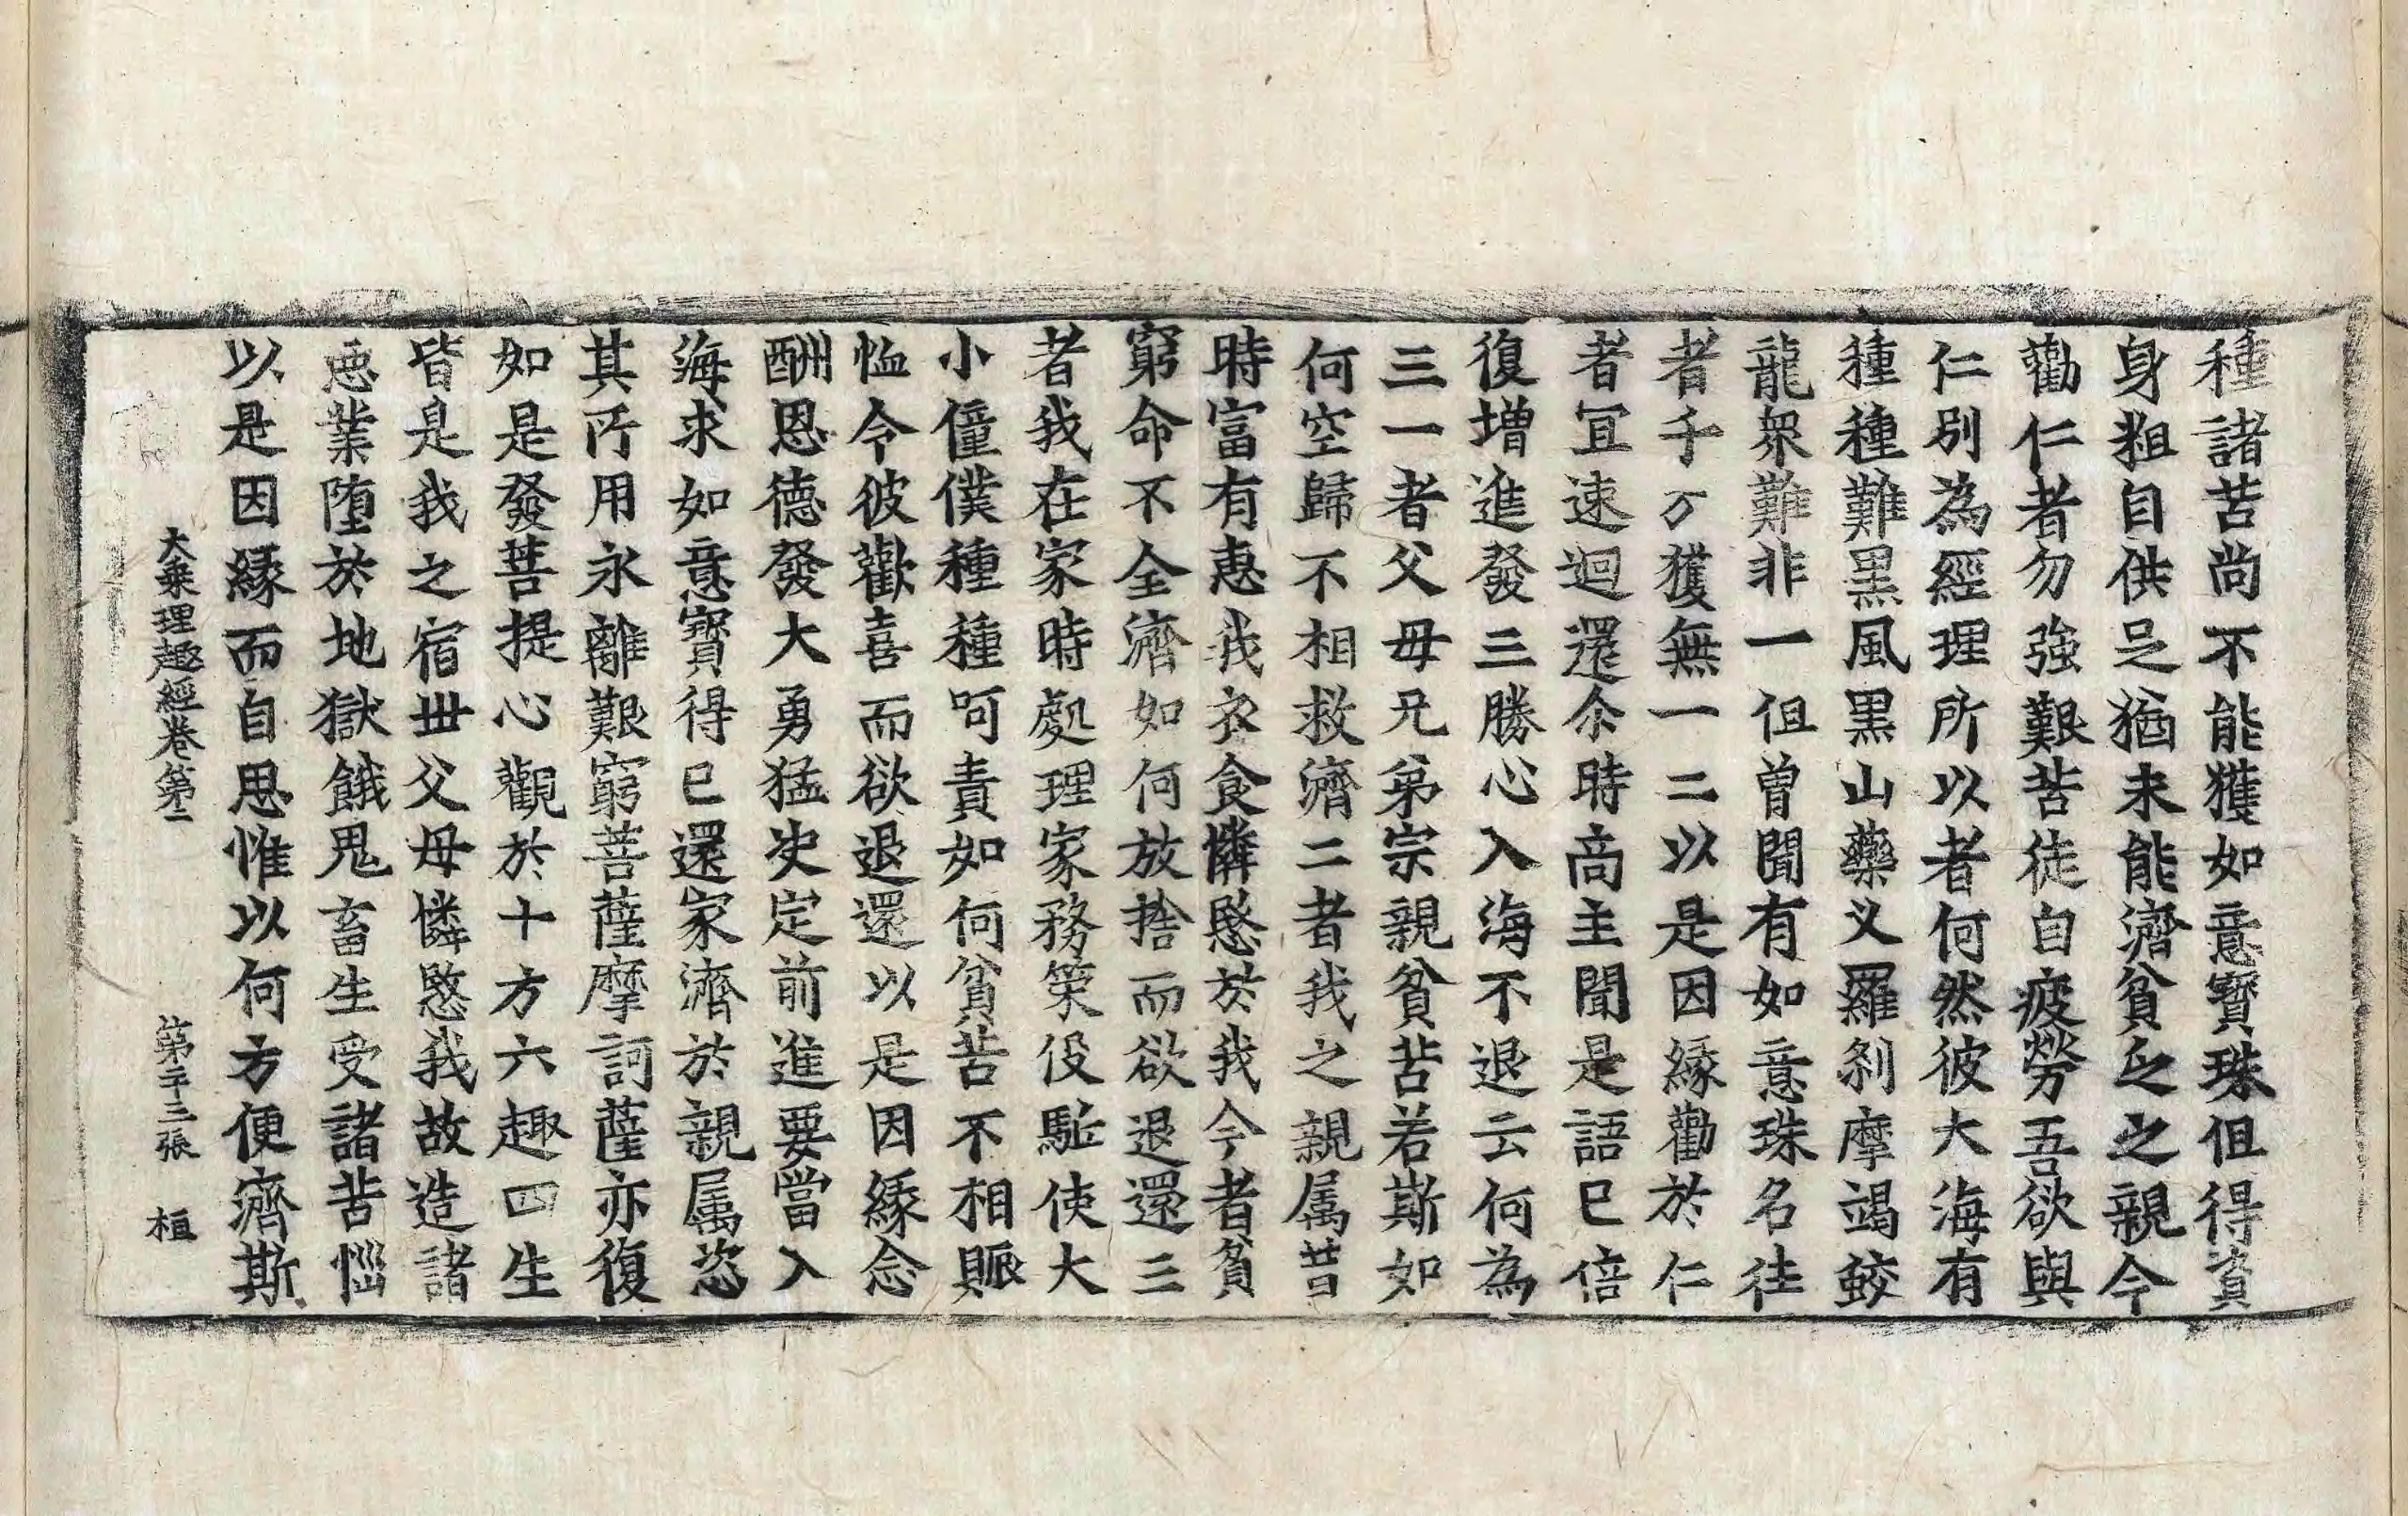 種諸苦尚不能獲如意寶珠但得資
身粗自供足猶未能濟貧乏之親今
勸仁者勿強艱苦徒自疲勞吾欲與
仁別為經理所以者何然彼大海有
種種難黑風黑山藥叉羅刹摩竭鮫
龍衆難非一但曾聞有如意珠名往
者千万獲無一二以是因緣勸於仁
者冝速迴還尒時商主聞是語已倍
復增進發三勝心入海不退云何為
三一者父母兄弟宗親貧苦若斯如
何空歸不相救濟二者我之親属昔
時富有惠我衣食憐愍於我今者貧
窮命不全濟如何放捨而欲退還三
者我在家時處理家務策役駈使大
小僮僕種種呵責如何貧苦不相賑
恤令彼歡喜而欲退還以是因緣念
酬恩德發大勇猛决定前進要當入
海求如意寶得已還家濟於親属恣
其所用永離艱窮菩薩摩訶薩亦復
如是發菩提心觀於十方六趣四生
皆是我之宿丗父母憐愍我故造諸
惡業墮於地獄餓鬼畜生受諸苦惱
以是因緣而自思惟以何方便濟斯
大乘理趣經卷第二　第二十三張　桓